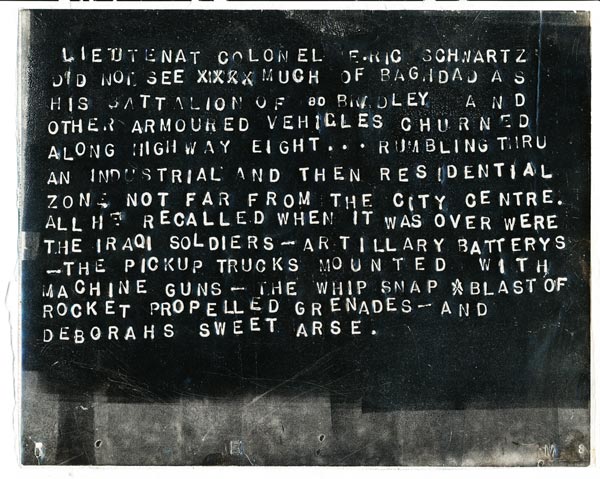 LIEUTENAT COLONEL ERIC SCHWARTZ
DID NOT SEE XIXXX MUCH OF BAGHDAD AS
HIS BATTALION OF 80 BRADLEY AND
OTHER ARMOURED VEHICLES CHURNED
ALONG HIGHWAY EIGHT... RUMBLING THRU
AN INDUSTRIAL AND THEN RESIDENTIAL
ZONE NOT FAR FROM THE CITY CENTRE.
ALL HE RECALLED WHEN IT WAS OVER WERE
THE IRAQI SOLDIERS — ARTILLARY BATTERYS
— THE PICKUP TRUCKS MOUNTED WITH
MACHINE GUNS — THE WHIP SNAP & BLAST OF
ROCKET PROPELLED GRENADES — AND
DEBORAHS SWEET ARSE.